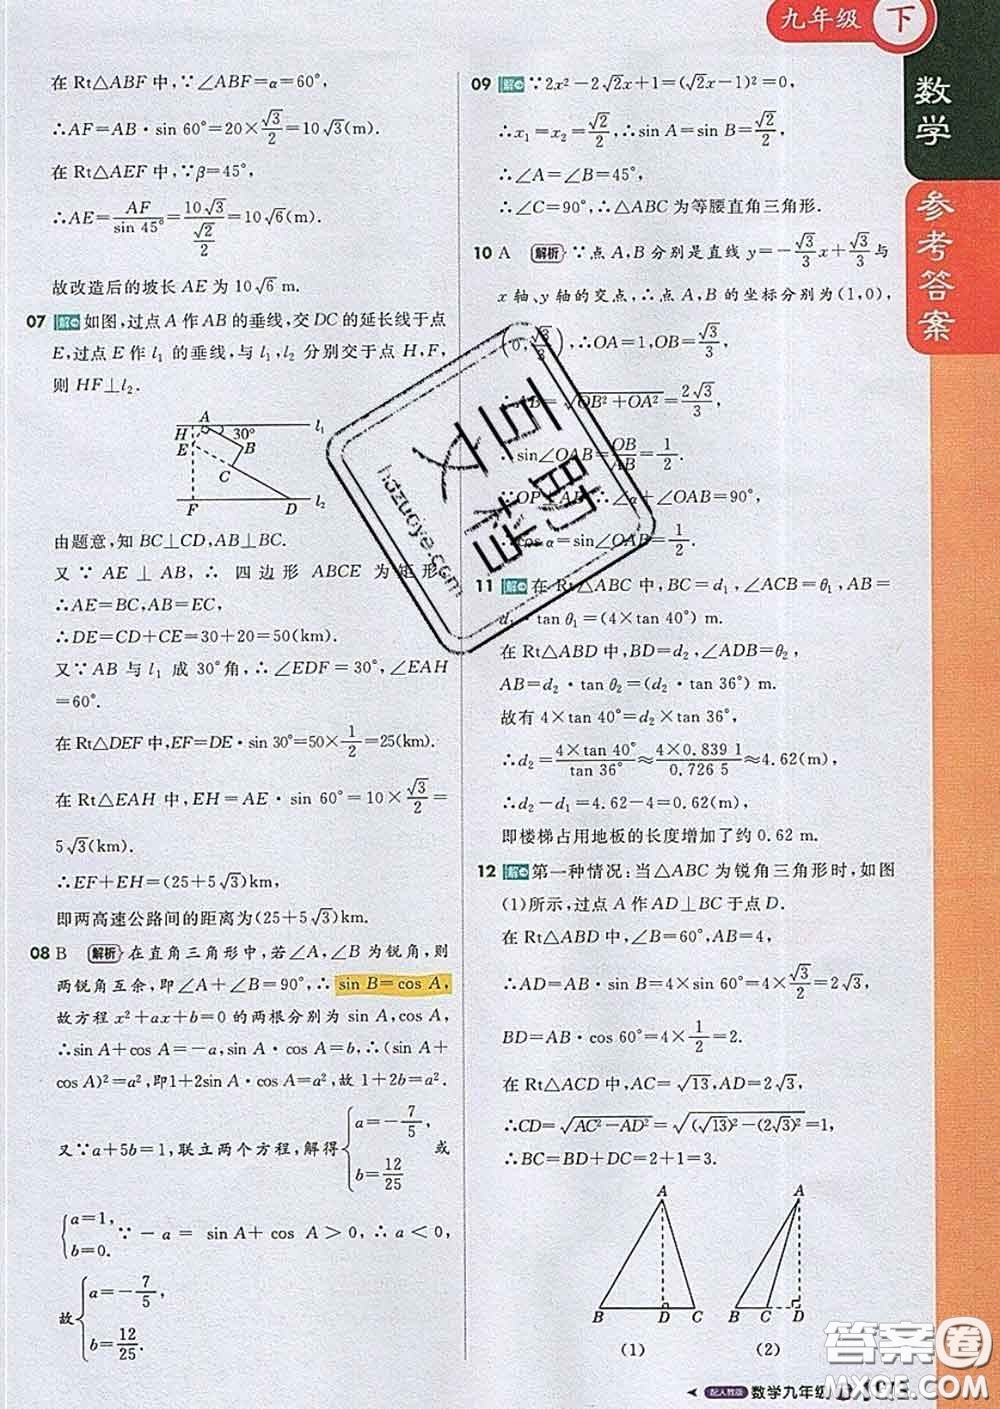 九年级 下
数学
参考答案
在 Rt△ABF 中,∵∠ABF=α=60°,
∴AF=AB·sin 60°=20×√3/2=10√3(m).
在 Rt△AEF 中,∵β=45°,
∴AE=AF/sin 45°=10√3/(√2/2)=10√6(m).
故改造后的坡长 AE 为 10√6 m.
07 解 如图,过点 A 作 AB 的垂线,交 DC 的延长线于点
E,过点 E 作 l₁ 的垂线,与 l₁,l₂ 分别交于点 H,F,
则 HF⊥l₂.
A
H 30° l₁
E B
C
F D l₂
由题意,知 BC⊥CD,AB⊥BC.
又∵ AE⊥AB,∴ 四边形 ABCE 为矩形
∴AE=BC,AB=EC,
∴DE=CD+CE=30+20=50(km).
又∵AB 与 l₁ 成 30°角,∴∠EDF=30°,∠EAH
=60°.
在 Rt△DEF 中,EF=DE·sin 30°=50×1/2=25(km).
在 Rt△EAH 中,EH=AE·sin 60°=10×√3/2=
5√3(km).
∴EF+EH=(25+5√3)(km),
即两高速公路间的距离为(25+5√3)km.
08 B 解析 在直角三角形中,若∠A,∠B 为锐角,则
两锐角互余,即∠A+∠B=90°,∴ sin B=cos A,
故方程 x²+ax+b=0 的两根分别为 sin A,cos A,
∴sin A+cos A=-a,sin A·cos A=b,∴(sin A+
cos A)²=a²,即1+2sin A·cos A=a²,故 1+2b=a².
又∵a+5b=1,联立两个方程,解得{a=-7/5, b=12/25 或
{a=1, b=0. ∵ -a=sin A+cos A>0,∴a<0,
故{a=-7/5, b=12/25.
09 解 ∵2x²-2√2x+1=(√2x-1)²=0,
∴x₁=x₂=√2/2,∴sin A=sin B=√2/2,
∴∠A=∠B=45°,
∴∠C=90°,∴△ABC 为等腰直角三角形.
10 A 解析 ∵点 A,B 分别是直线 y=-√3/3x+√3/3 与
x 轴、y 轴的交点,∴点 A,B 的坐标分别为(1,0),
(0,√3/3),∴OA=1,OB=√3/3,
∴AB=√(OB²+OA²)=2√3/3,
∴sin∠OAB=OB/AB=1/2.
∵OP⊥AB,∴∠α+∠OAB=90°,
∴cos α=sin∠OAB=1/2.
11 解 在 Rt△ABC 中,BC=d₁,∠ACB=θ₁,AB=
d₁·tan θ₁=(4×tan 40°) m.
在 Rt△ABD 中,BD=d₂,∠ADB=θ₂,
AB=d₂·tan θ₂=(d₂×tan 36°) m.
故有 4×tan 40°=d₂×tan 36°,
∴d₂=4×tan 40°/tan 36°≈4×0.839 1/0.726 5≈4.62(m).
∴d₂-d₁=4.62-4=0.62(m),
即楼梯占用地板的长度增加了约 0.62 m.
12 解 第一种情况:当△ABC 为锐角三角形时,如图
(1)所示,过点 A 作 AD⊥BC 于点 D.
在 Rt△ABD 中,∵∠B=60°,AB=4,
∴AD=AB·sin 60°=4×√3/2=2√3,
BD=AB·cos 60°=4×1/2=2.
在 Rt△ACD 中,AC=√13,AD=2√3,
∴CD=√(AC²-AD²)=√((√13)²-(2√3)²)=1,
∴BC=BD+DC=2+1=3.
A A
B D C B C D
(1) (2)
hdzuoye.com
配人教版 数学九年级
答案圈